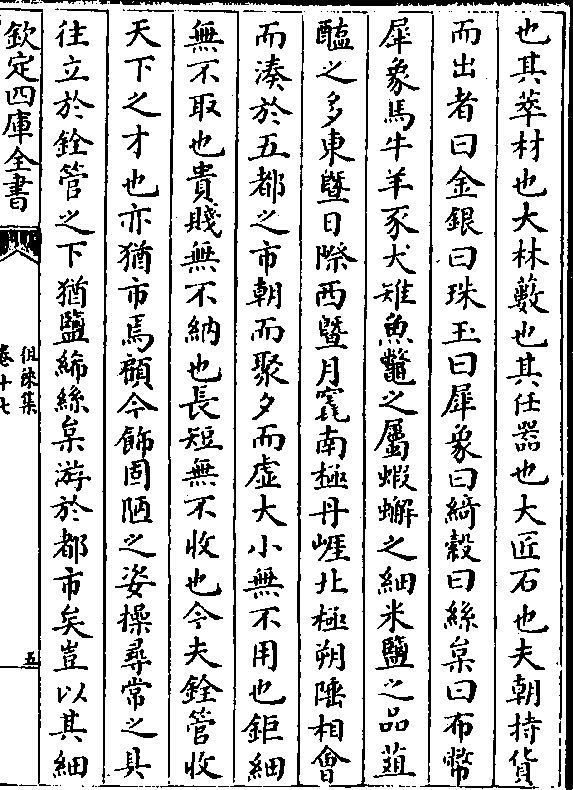 也其萃材也大林藪也其任器也大匠石也夫朝持貨
而出者曰金銀曰珠玉曰犀象曰綺縠曰絲枲曰布幣
犀象馬牛羊豕犬雉魚鼈之屬蝦蠏之細米鹽之品葅
醢之多東暨日際西暨月窟南極丹崕北極朔陲相㑹
而湊於五都之市朝而聚夕而虚大小無不用也鉅細
無不取也貴賤無不納也長短無不收也今夫銓管收
天下之才也亦猶市焉顧今飾固陋之姿操尋常之具
往立於銓管之下猶鹽絺絲枲游於都市矣豈以其細
欽定四庫全書
徂徠集
卷十七
五